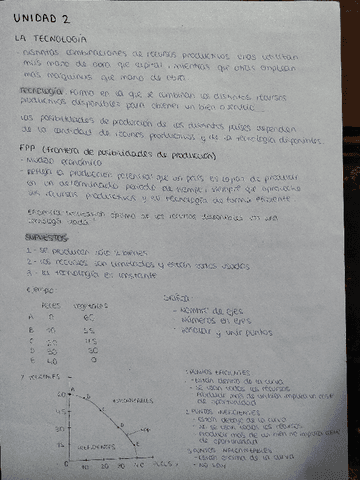 UNIDAD 2
LA TECNOLOGÍA
distintas combinaciones de recursos productivos. Unas utilizan
más mano de obra que capital, mientras que otras emplean
más máquinas que mano de obra.
Tecnología: Forma en la que se combinan los distintos recursos
productivos disponibles para obtener un bien o servicio
Las posibilidades de producción de los distintos países dependen
de la cantidad de recursos productivos y de la tecnología disponibles.
FPP (Frontera de posibilidades de producción)
- Modelo económico
- Refleja la producción potencial que un país es capaz de producir
en un determinado periodo de tiempo, siempre que aproveche
sus recursos productivos y su tecnología de forma eficiente
de los recursos disponibles en una
tecnología dada
SUPUESTOS
1 - Se producen sólo 2 bienes
2 - Los recursos son limitados y están todos usados
3 - La tecnología es constante
Ejemplo
Peces vegetales
A 0 60
B 10 55
C 20 45
D 30 30
E 40 0
Gráfica
- Nombre de ejes
números en ejes
- Señalar y unir puntos
vegetales
60
10 20 30 40 peces
PUNTOS EFICIENTES
- Están dentro de la curva
- Se usan todos los recursos
Producir más de un bien implica un coste
de oportunidad
PUNTOS INEFICIENTES
- Están debajo de la curva
- No se usan todos los recursos
Producir más de un bien no implica coste
de oportunidad
PUNTOS INALCANZABLES
- Están encima de la curva
- No